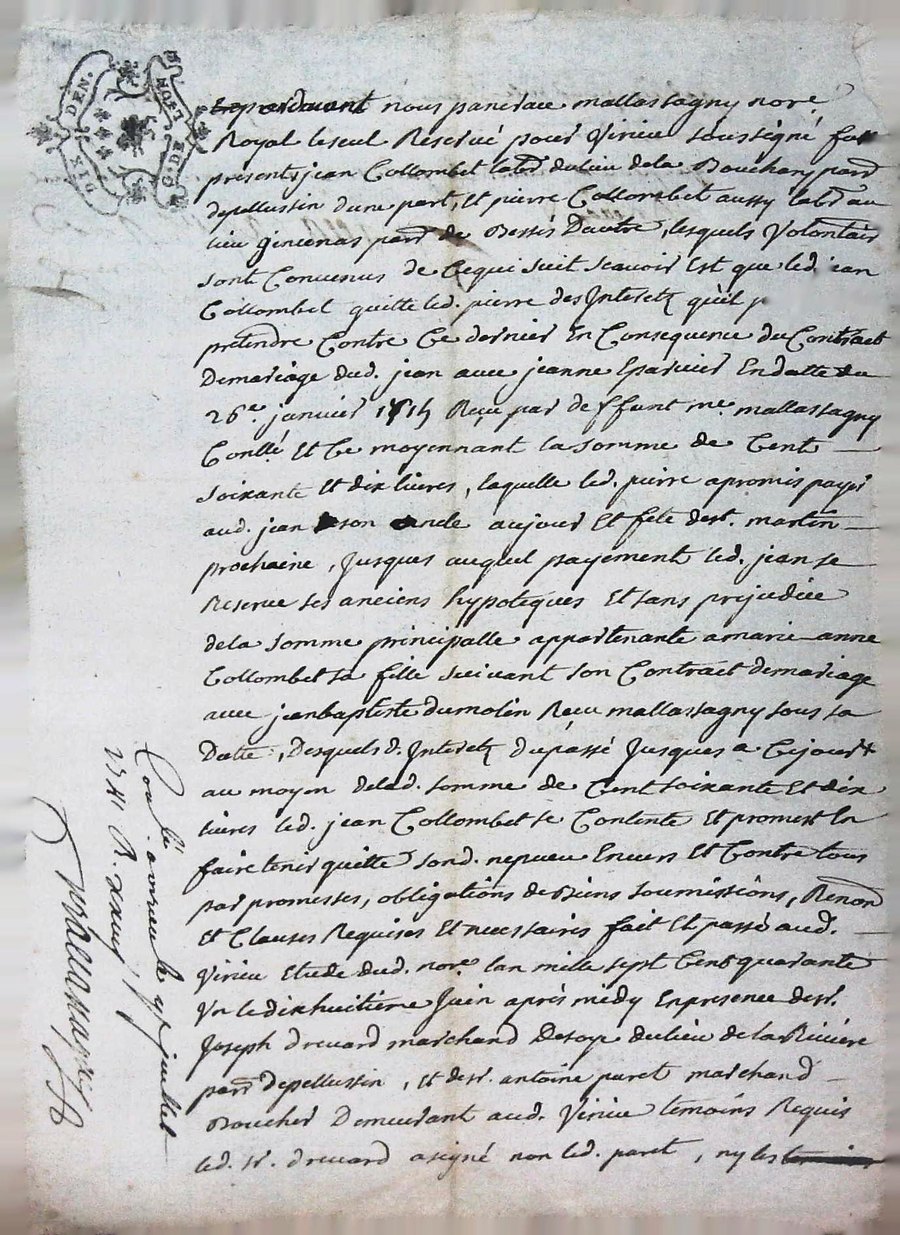 DIX DEN.
G. DE LYON
pardevant nous pancrace mallassagny nore.
Royal le seul Reservé pour Virieu soussigné fur
presents jean Collombet labr. du lieu de la Bouchary parr.
de pellussin d'une part, Et pierre Collombet aussy labr. au
lieu ginenas parr. de Bessés D'autre, lesquels Volontair
sont Convenus de Ce qui suit scavoir Est que led. jean
Collombet quitte led. pierre des Interetz qu'il p
prétendre Contre Ce dernier En Consequence du Contract
De mariage dud. jean avec jeanne Eparvier En datte du
26e. janvier Reçu par deffunt me. mallassagny
Conllé Et Ce moyennant la somme de Cent
soixante Et dix livres, laquelle led. pierre a promis payer
aud. jean son oncle au jour Et fete de st. martin
prochaine, jusques auquel payement led. jean se
Reserve ses anciens hypoteques Et sans prejudice
de la somme principalle appartenante a marie anne
Collombet sa fille suivant son Contract de mariage
avec jean baptiste dumolin Receu mallassagny sous sa
Datte, Desquels d. Interetz du passé jusques a Ce jour
au moyen de lad. somme de Cent soixante Et dix
livres led. jean Collombet se Contente Et promest le
faire tenir quitte sond. nepveu Envers Et Contre tous
par promesses, obligations de Biens soumissions, Renond
Et Clauses Requises Et necessaires fait Et passé aud.
Virieu Etude dud. nore. l'an mille sept Cent quarante
Un le dix huitième Juin après midy En presence de sr.
Joseph drevard marchand De soye du lieu de la Rivière
parr. de pellussin, Et de sr. antoine paret marchand
Boucher Demeurant aud. Virieu temoins Requis
led. sr. drevard a signé non led. paret, ny les
Conllé a virieu le juillet
1741 R.